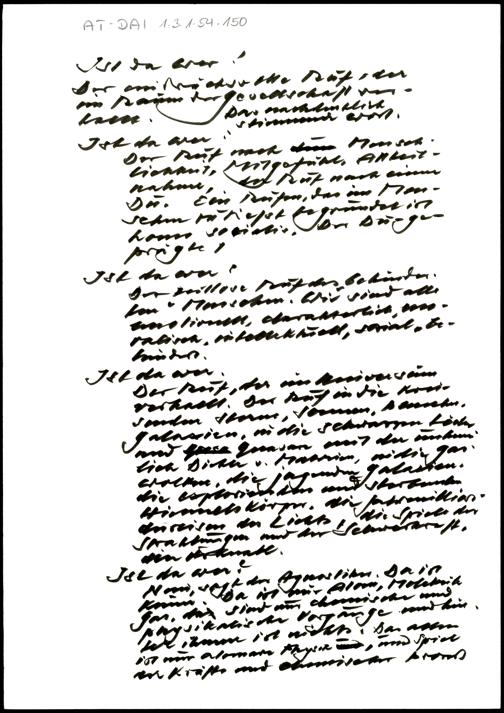 AT-DAI 1.3.1.54-150
Ist da wer?
Der einbrüchsvolle Ruf, der
im Raum der Gesellschaft ver-
hallt. Das nachdenklich
stimmende Wort.
Ist da wer?
Der Ruf nach Mensch-
lichkeit, Mitgefühl, Anteil-
nahme, der Ruf nach einem
Du. Ein Rufen, das im Men-
schen zutiefst begründet ist
homo socialis. Der Du-ge-
prägte!
Ist da wer?
Der zeitlose Ruf des behinder-
ten Menschen. Wir sind alle
emotionell, charakterlich, mo-
ralisch, intellektuell, sozial, be-
hindert.
Ist da wer.
Der Ruf, der im Universum
verhallt. Der Ruf in die krei-
senden Sterne, Sonnen, Planeten,
Galaxien, in die schwarzen Löcher
und Quasare mit der unheim-
lich Dichte v. Materie, in die Gas-
wolken, die jagenden Galaxien.
die explodierenden und sterbenden
Himmelskörper, die
der Lichts, die Spiele der
Strahlungen und der Schwerkraft,
den Urknall.
Ist da wer?
Nein, sagt der Agnostiker. Da ist
keiner. Da ist nur Atom, Molekül
Gas, das sind nur chemische und
physikalische Vorgänge und hin-
ter ihnen ist nichts. Das alles
ist nur atomare Physik, und Spiel
der Kräfte und chemischer Prozeß